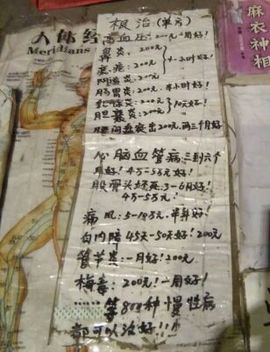 人体经
Meridians
麻衣神相
根治(单方)
高血压:200元一周好!
鼻炎:200元!
癌疮:200元!
阑尾炎:200元!
十小时好!
肠胃炎:200元!半小时好!
乳腺炎:200元!
胆囊炎:200元!
10天好!
腰间盘突出200元.两三个月好!
心脑血管病三到六个
月好!4万-5万元好!
股骨头坏死3-6月好!
4万-5万元!
痛风:5-18万元.半年好!
白内障45天-50天好!200元!
骨节炎:一月好!200元
梅毒:200元!一周好!
等800种慢性病
都可以治好!!!